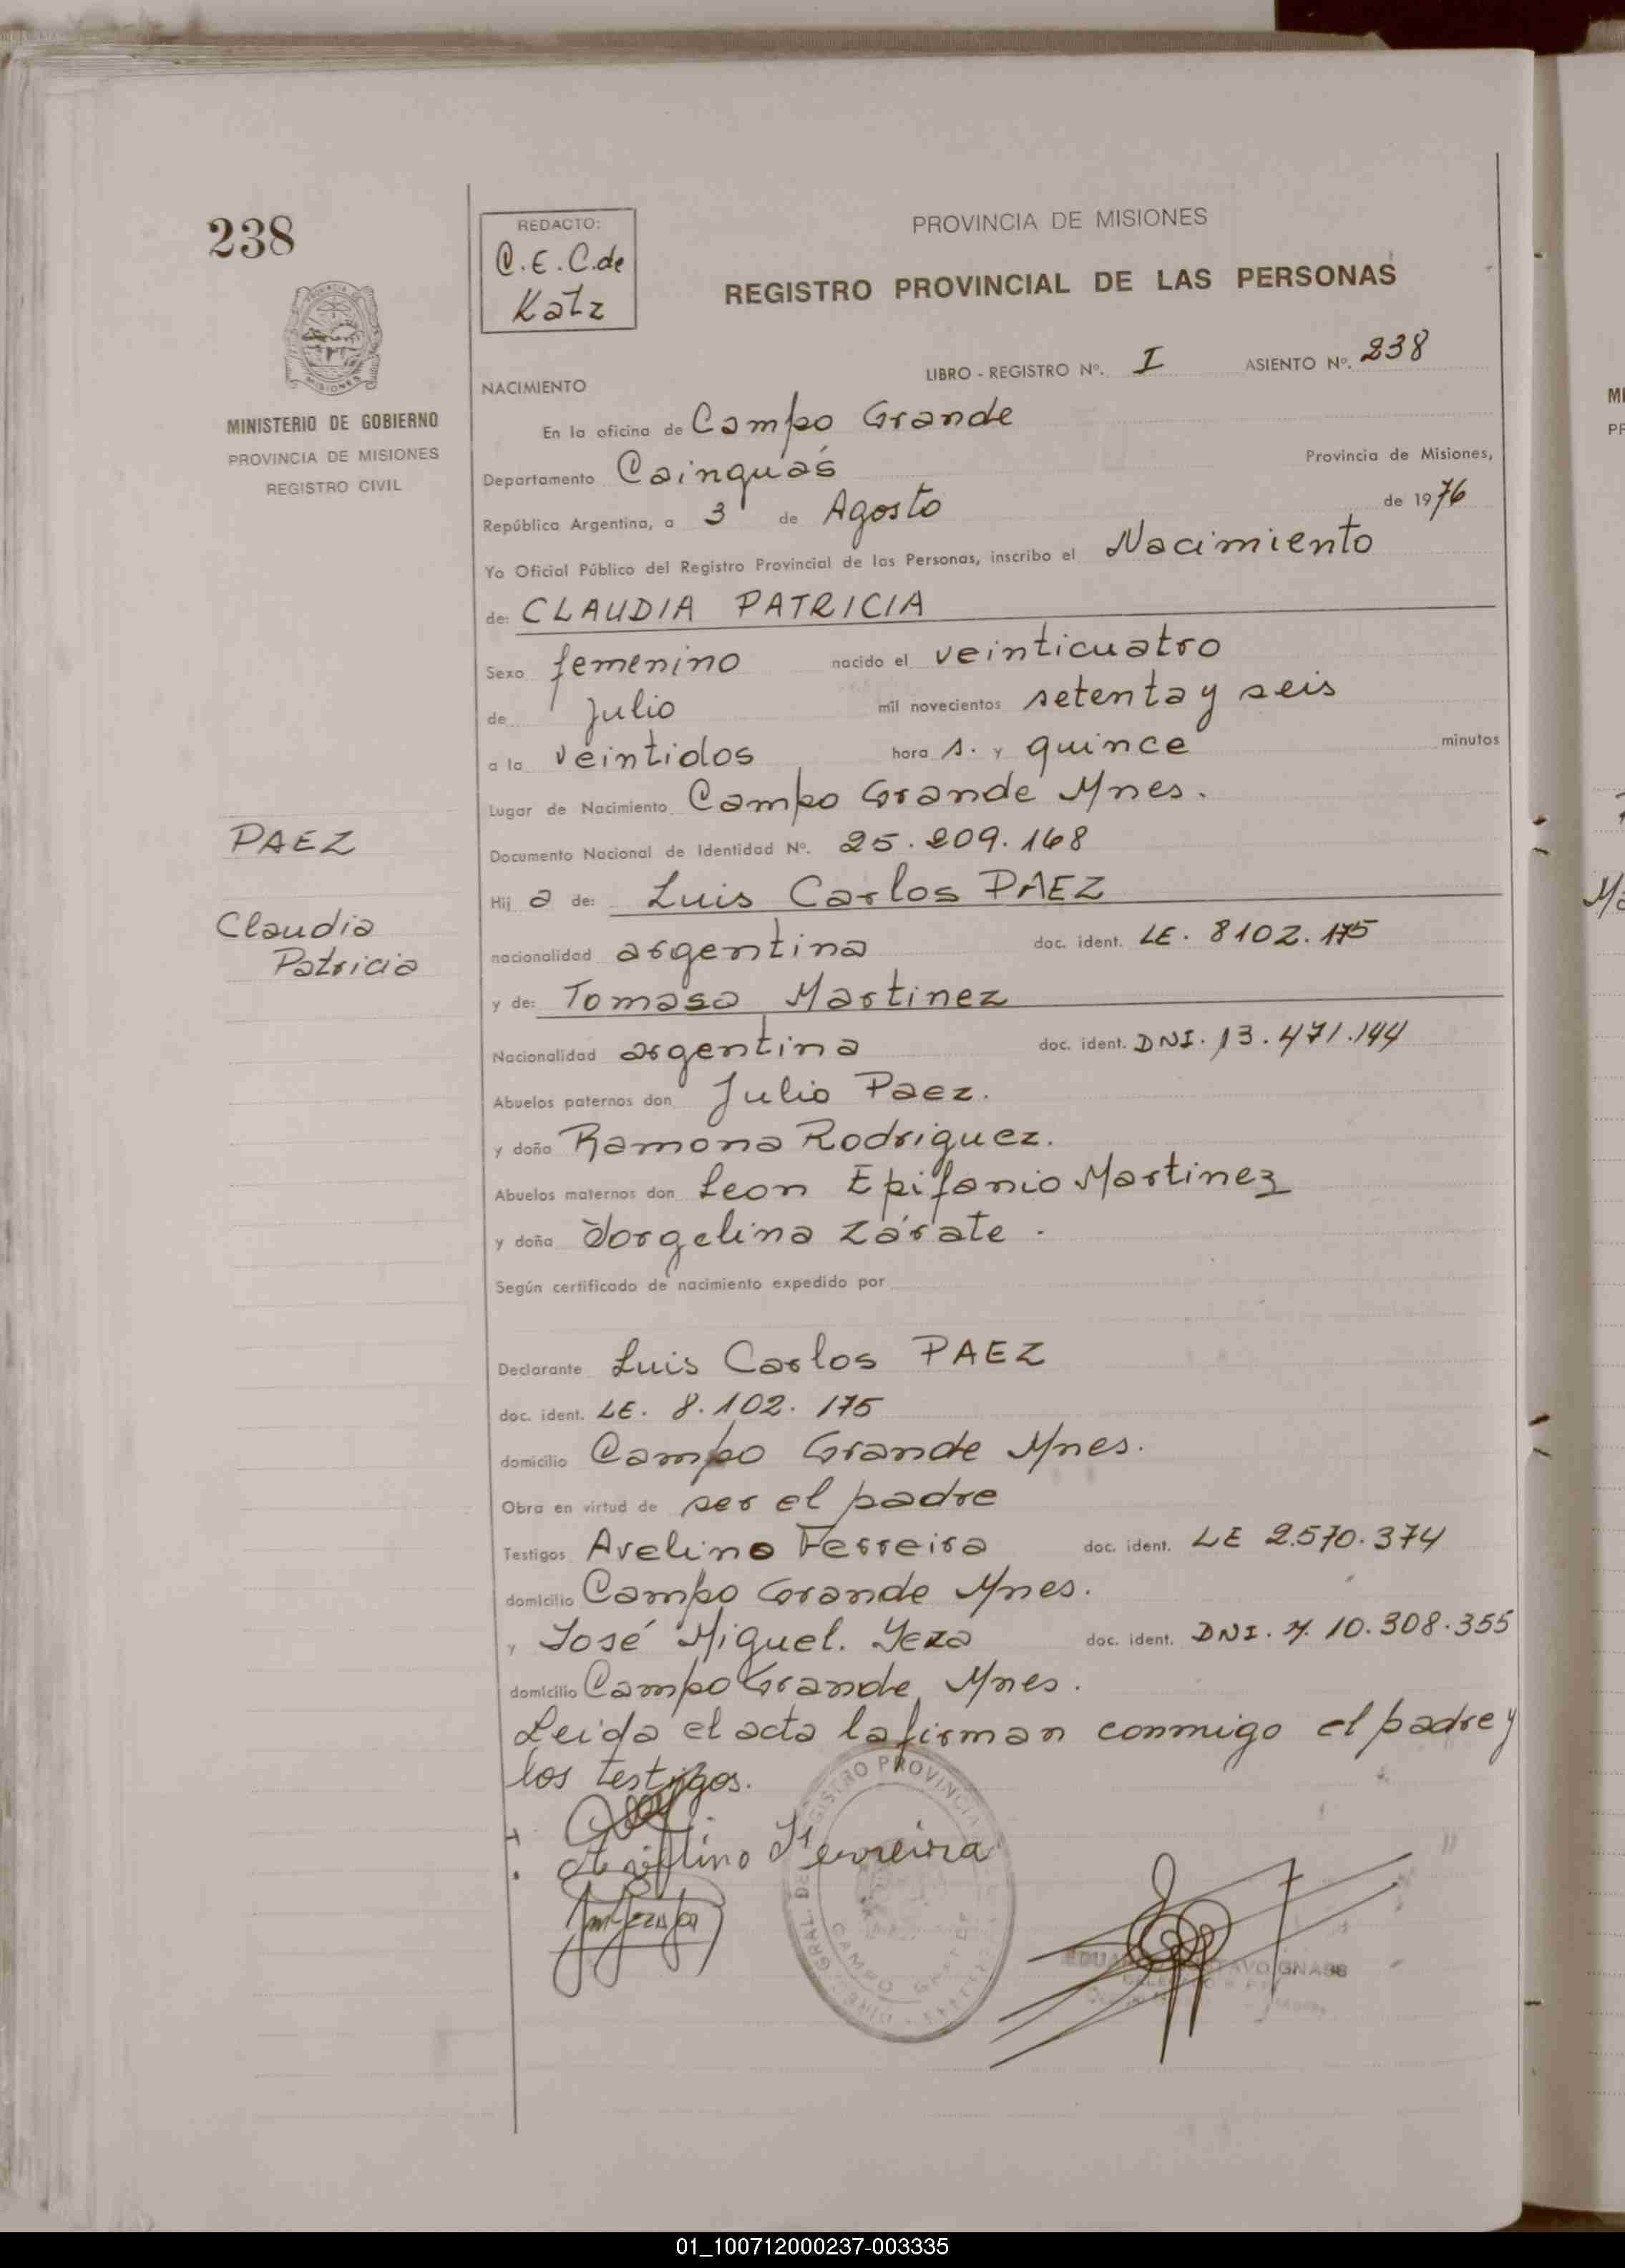 238
PROVINCIA DE
MISIONES
MINISTERIO DE GOBIERNO
PROVINCIA DE MISIONES
REGISTRO CIVIL
PAEZ
Claudia
Patricia
REDACTO:
C.E.C.de
Katz
PROVINCIA DE MISIONES
REGISTRO PROVINCIAL DE LAS PERSONAS
LIBRO - REGISTRO Nº. I ASIENTO Nº. 238
NACIMIENTO
En la oficina de Campo Grande
Departamento Cainguás Provincia de Misiones,
República Argentina, a 3 de Agosto de 1976
Yo Oficial Público del Registro Provincial de las Personas, inscribo el Nacimiento
de: CLAUDIA PATRICIA
Sexo femenino nacido el veinticuatro
de Julio mil novecientos setenta y seis
a la veintidos hora s. y quince minutos
Lugar de Nacimiento Campo Grande Mnes.
Documento Nacional de Identidad Nº. 25.209.168
Hij a de: Luis Carlos PAEZ
nacionalidad argentina doc. ident. LE. 8102.175
y de: Tomasa Martinez
Nacionalidad argentina doc. ident. DNI. 13.471.144
Abuelos paternos don Julio Paez.
y doña Ramona Rodriguez.
Abuelos maternos don Leon Epifanio Martinez
y doña Jorgelina Zárate.
Según certificado de nacimiento expedido por
Declarante Luis Carlos PAEZ
doc. ident. LE. 8.102.175
domicilio Campo Grande Mnes.
Obra en virtud de ser el padre
Testigos Avelino Ferreira doc. ident. LE 2.570.374
domicilio Campo Grande Mnes.
y José Miguel. Yeza doc. ident. DNI. M. 10.308.355
domicilio Campo Grande Mnes.
Leida el acta la firman conmigo el padre y
los testigos.
Avelino Ferreira
REGISTRO PROVINCIAL
CAMPO GRANDE
01_100712000237-003335